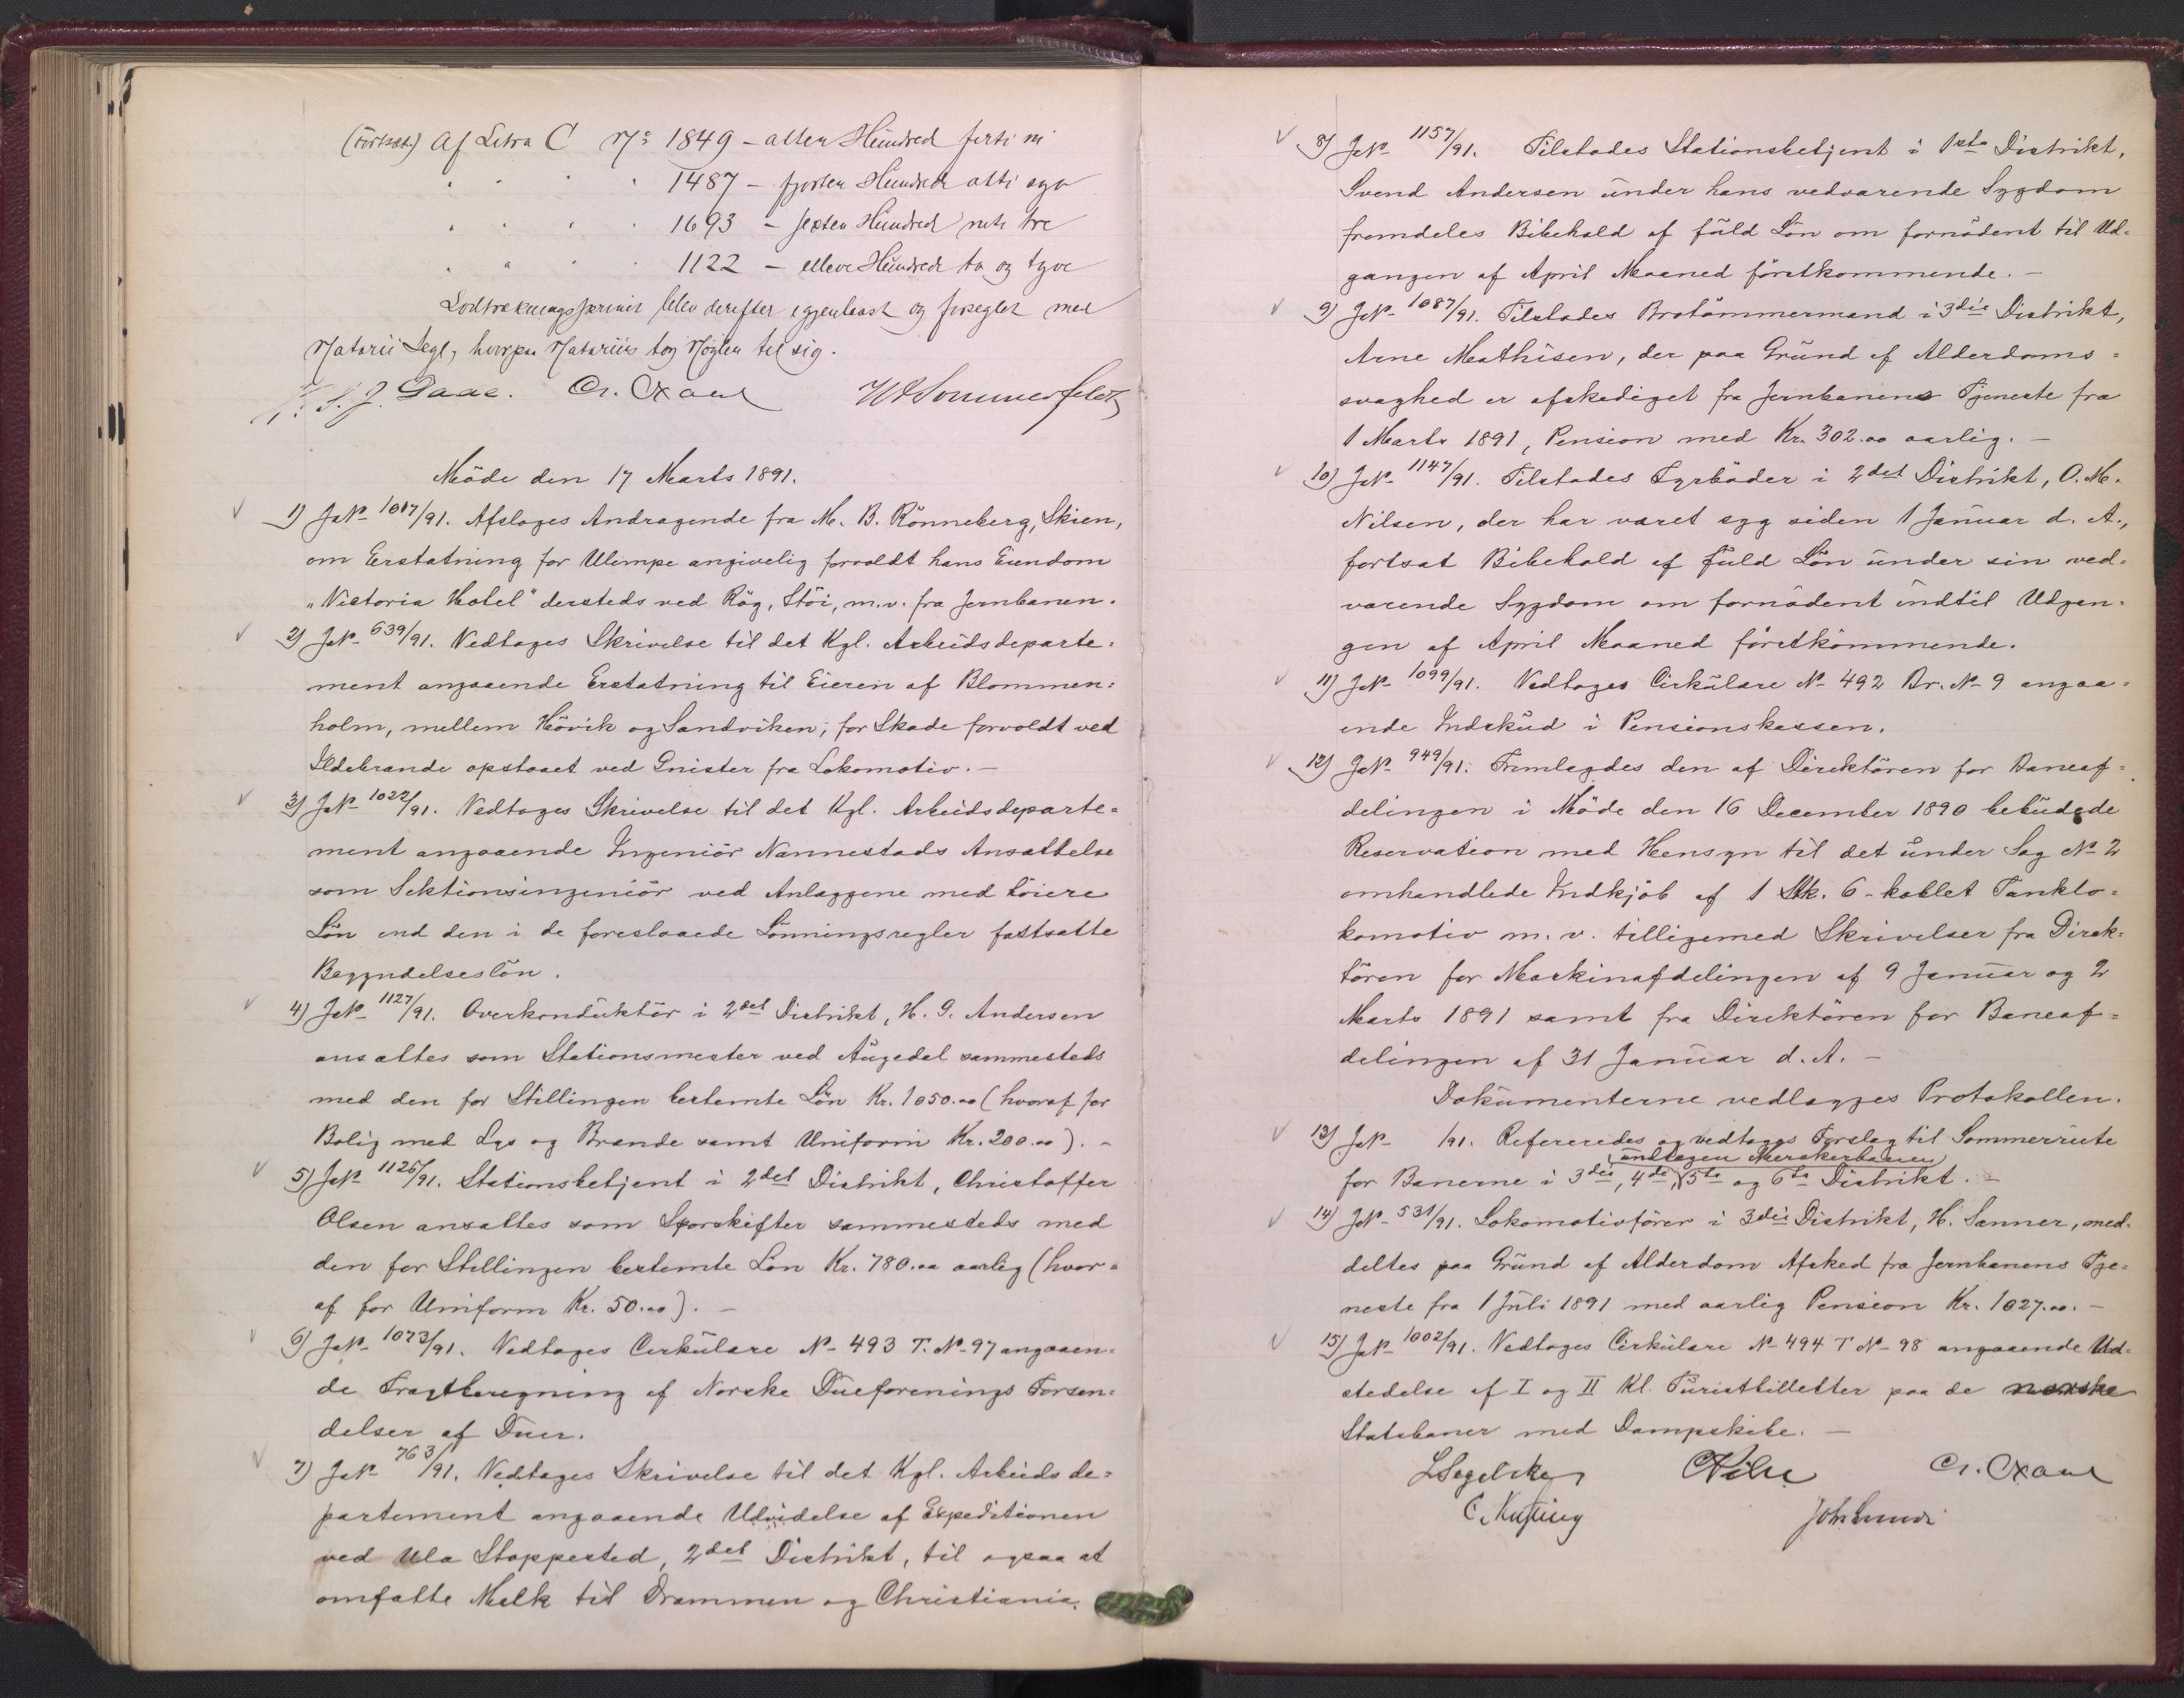 (Fortsat) Af Litra C No 1849 - atten Hundred forti ni
" " " " 1487 - fjorten Hundrede otti syv
" " " " 1693 - sexten Hundred niti tre
" " " " 1122 - elleve Hundrede to og tyve
Lodtrækningsskrinet blev derefter igjenlaast og forseglet med
Notarii Segl, hvorpaa Notarius tog Nøglen til sig.
J. Daae. Cr. W Sommerfeldt
Möde den 17 Marts 1891.
1) JN- 1017/91. Afsloges Andragende fra M. B. Rönneberg, Skien,
om Erstatning for Ulempe angivelig forvoldt hans Eiendom
"Victoria Hotel" dersteds ved Røg, Støi, m.v. fra Jernbanen.
2) JN- 639/91. Vedtoges Skrivelse til det Kgl. Arbeidsdeparte=
ment angaaende Erstatning til Eieren af Blommen=
holm, mellem Hövik og Sandviken, for Skade forvoldt ved
Ildebrande opstaaet ved Gnister fra Lokomotiv. -
3) JN- 1022/91. Vedtoges Skrivelse til det Kgl. Arbeidsdeparte=
ment angaaende Ingeniör Nannestads Ansættelse
som Sektionsingeniör ved Anlæggene med höiere
Lön end den i de foreslaaede Lönningsregler fastsatte
Begyndelseslön.
4) JN- 1127/91. Overkonduktör i 2det Distrikt, H. G. Andersen
ansættes som Stationsmester ved Augedal sammesteds
med den for Stillingen bestemte Lön Kr. 1050.00 (hvoraf for
Bolig med Lys og Brænde samt Uniform Kr. 200.00). -
5) JN- 1126/91. Stationsbetjent i 2det Distrikt, Christoffer
Olsen ansattes som Sporskifter sammesteds med
den for Stillingen bestemte Lön Kr. 780.00 aarlig (hvor=
af for Uniform Kr. 50.00). -
6) JN- 1073/91. Vedtoges Cirkulære N- 493 T. N- 97 angaaen=
de Fragtberegning af Norske Dueforenings Forsen=
delser af Duer.
7) JN- 763/91. Vedtoges Skrivelse til det Kgl. Arbeidsde=
partement angaaende Udvidelse af Expeditionen
ved Ula Stoppested, 2det Distrikt, til ogsaa at
omfatte Melk til Drammen og Christiania.
8) JN- 1157/91. Tilstodes Stationsbetjent i 1ste Distrikt,
Svend Andersen under hans vedvarende Sygdom
fremdeles Bibehold af fuld Lön om fornödent til Ud=
gangen af April Maaned förstkommende. -
9) JN- 1087/91. Tilstodes Brotömmermand i 3die Distrikt,
Arne Mathisen, der paa Grund af Alderdoms=
svaghed er afskediget fra Jernbanens Tjeneste fra
1 Marts 1891, Pension med Kr. 302.00 aarlig. -
10) JN- 1147/91. Tilstodes Fyrböder i 2det Distrikt, O. M.
Nilsen, der har været syg siden 1 Januar d. A.,
fortsat Bibehold af fuld Lön under sin ved=
varende Sygdom om fornödent indtil Udgan=
gen af April Maaned förstkommende.
11) JN- 1099/91. Vedtoges Cirkulære N- 492 Br. N- 9 angaa=
ende Indskud i Pensionskassen.
12) JN- 949/91. Fremlagdes den af Direktören for Baneaf=
delingen i Möde den 16 December 1890 bebudede
Reservation med Hensyn til det under Sag N- 2
omhandlede Indkjöb af 1 Stk. 6-koblet Tanklo=
komotiv m. v. tilligemed Skrivelser fra Direk=
tören for Maskinafdelingen af 9 Januar og 2
Marts 1891 samt fra Direktören for Baneaf=
delingen af 31 Januar d. A. -
Dokumenterne vedlægges Protokollen.
13) JN- /91. Refereredes og vedtoges Forslag til Sommerrute
(undtagen Merakerbanen)
for Banerne i 3die, 4de, 5te og 6te Distrikt. -
14) JN- 531/91. Lokomotivförer i 3die Distrikt, H. Sanner, med=
deltes paa Grund af Alderdom Afsked fra Jernbanens Tje=
neste fra 1 Juli 1891 med aarlig Pension Kr. 1027.00. -
15) JN- 1002/91. Vedtoges Cirkulære N- 494 T N- 98 angaaende Ud=
stedelse af I og II Kl. Turistbilletter paa de norske
Statsbaner med Dampskibe. -
LSegelcke CPihl Cr.
Joh Lund